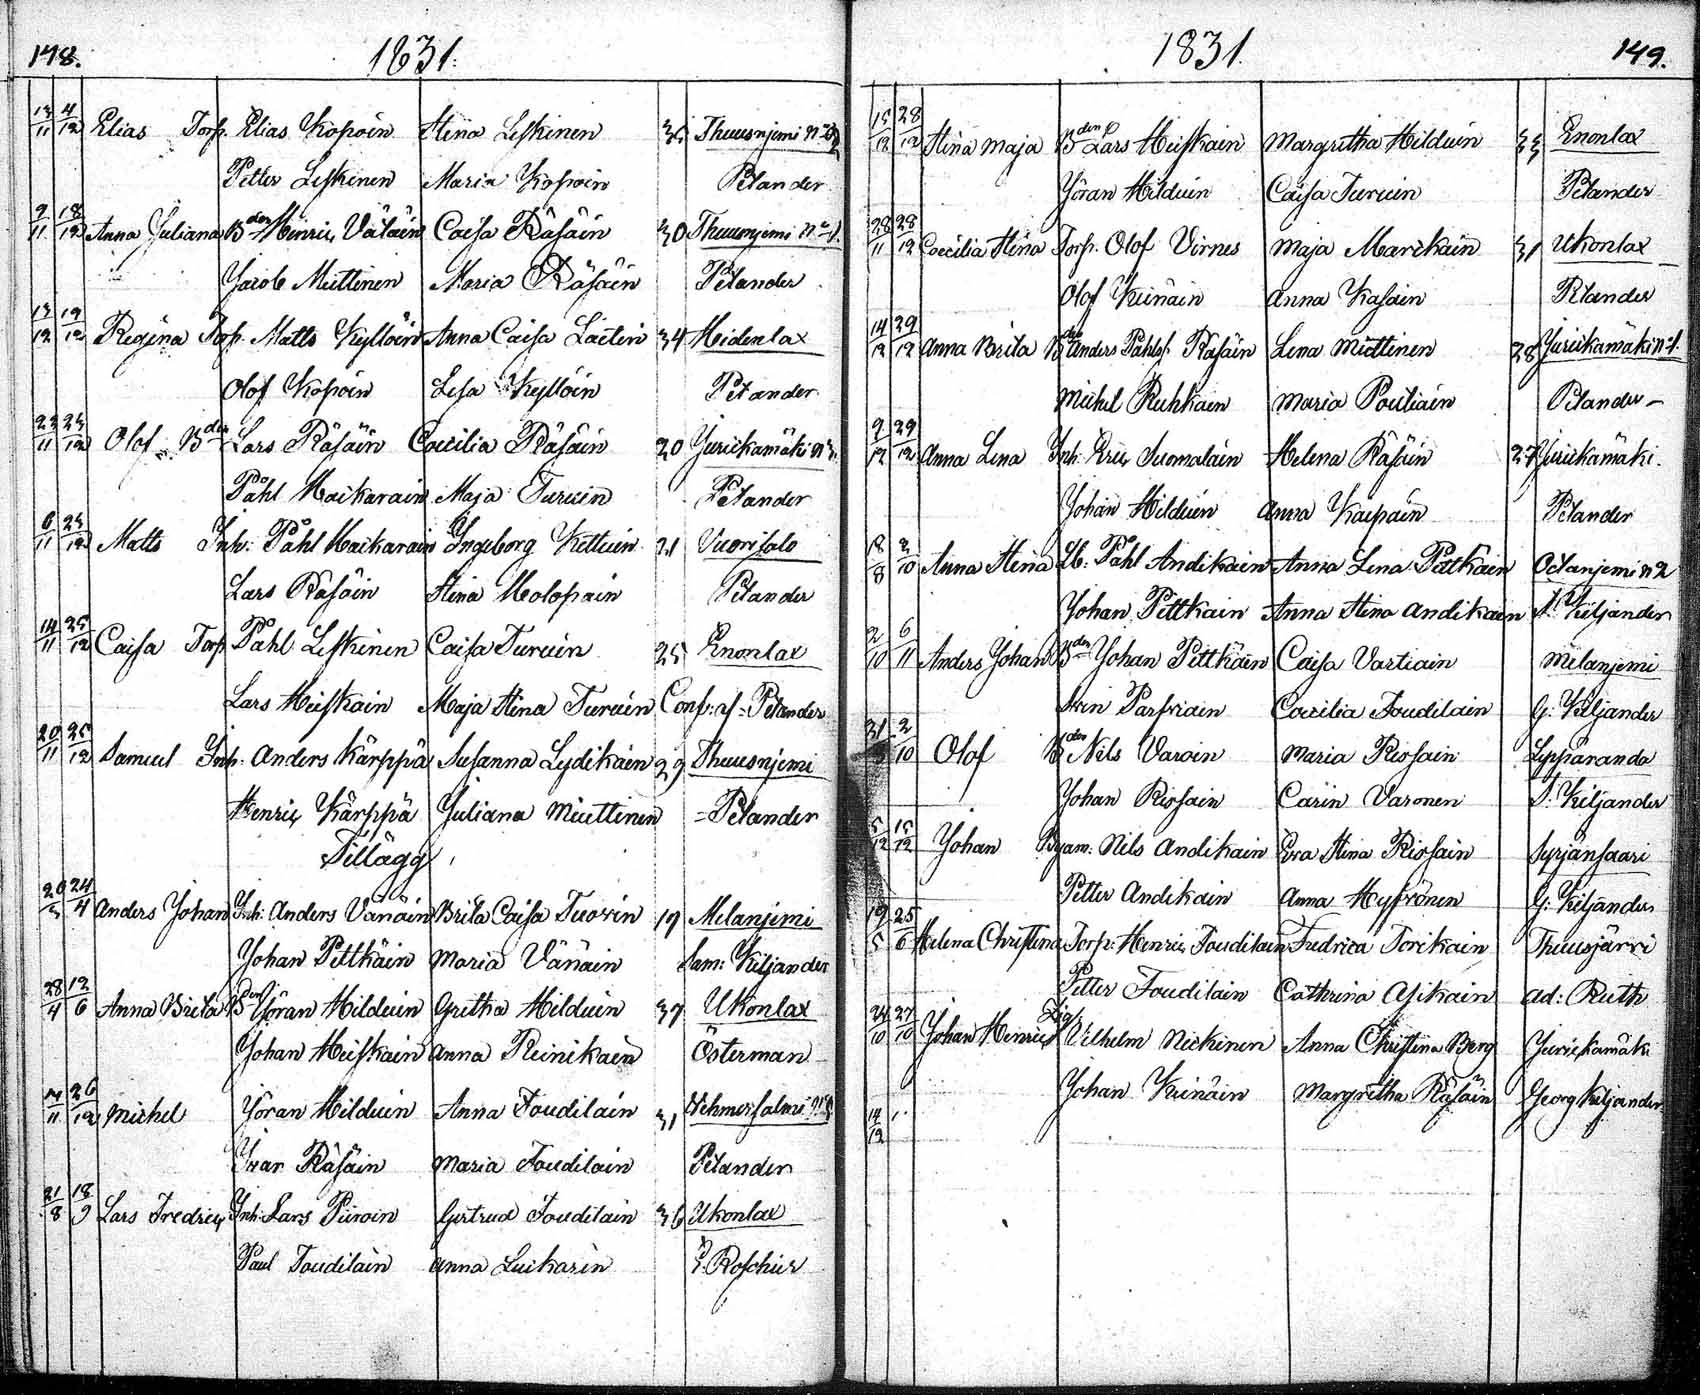 148. 1831.
13/11 4/12 Elias Torp. Elias Kopoin Stina Leskinen 35 Thuusnjemi
Petter Leskinen Maria Kopoin Pelander
9/11 18/12 Anna Juliana Bden Henric Väläin Caisa Räsäin 30 Thuusnjemi
Jacob Miettinen Maria Räsäin Pelander
13/12 19/12 Regina Torp. Matts Kyllöin Anna Caisa Laitin 34 Hidenlax
Olof Kopoin Lisa Kyllöin Pelander
23/11 25/12 Olof Bden Lars Räsäin Cecilia Räsäin 20 Jurickamäki
Påhl Haikarain Maja Turuin Pelander
6/11 25/12 Matts Inh: Påhl Haikarain Ingeborg Kettuin 21 Vuorisalo
Lars Räsäin Stina Holopain Pelander
14/11 25/12 Caisa Torp Påhl Leskinen Caisa Turuin 25 Enonlax
Lars Heiskain Maja Stina Turuin Conf: af Pelander
20/11 25/12 Samuel Inh. Anders Kärppä Susanna Lydikäin 29 Thuusnjemi
Henric Kärppä Juliana Miettinen Pelander
Tillägg
24/4 Anders Johan Inh: Anders Vänäin Brita Caisa Tuovin 19 Melanjemi
Johan Pittkäin Maria Vänäin Sam: Kiljander
28/4 12/6 Anna Brita Bden Jöran Hilduin Gretha Hilduin 37 Ukonlax
Johan Heiskain Anna Reinikain Österman
26/12 Michel Jöran Hilduin Anna Toudilain 31 Vehmersalmi
Ivar Räsäin Maria Toudilain Pelander
21/8 18/9 Lars Fredric Inh: Lars Piiroin Gertrud Toudilain 36 Ukonlax
Paul Toudilain Anna Luikarin Roschier
1831. 149.
15/12 28/12 Stina Maja Bden Lars Heiskain Margretha Hilduin 33 Enonlax
Jöran Hilduin Caisa Turuin Pelander
28/11 28/12 Coecilia Stina Torp. Olof Virnes Maja Marckain 31 Ukonlax
Olof Keinäin Anna Kasain Pelander
14/12 29/12 Anna Brita Bden Anders Påhls. Räsäin Lena Miettinen 28 Jurickamäki
Michel Ruhkain Maria Poutiain Pelander
9/12 29/12 Anna Lena Inh: Eric Suomalain Helena Räsäin 27 Jurickamäki.
Johan Hilduin Anna Kaipain Pelander
2/10 Anna Stina Påhl Andikain Anna Lena Pittkäin
Johan Pittkain Anna Stina Andikain S. Kiljander
2/10 6/11 Anders Johan Bden Johan Pittkäin Caisa Vartiain Melanjemi
Cecilia Toudilain G: Kiljander
2/10 Olof Bden Nils Varoin Maria Rissain Lyppäranda
Johan Rissain Carin Varonen S: Kiljander
5/12 15/12 Johan Nils Andikain Eva Stina Rissain Syrjänsaari
Petter Andikain Anna Hyfvönen G: Kiljander
19/5 25/6 Helena Christina Torp: Henric Toudilain Fredrica Torikain Thuusjärvi
Petter Toudilain Cathrina Asikain Ad: Ruth
24/10 27/10 Johan Henric Vilhelm Nickinen Anna Christina Berg Jurickamäki
Johan Keinäin Margretha Räsäin Georg Kiljander
14/12